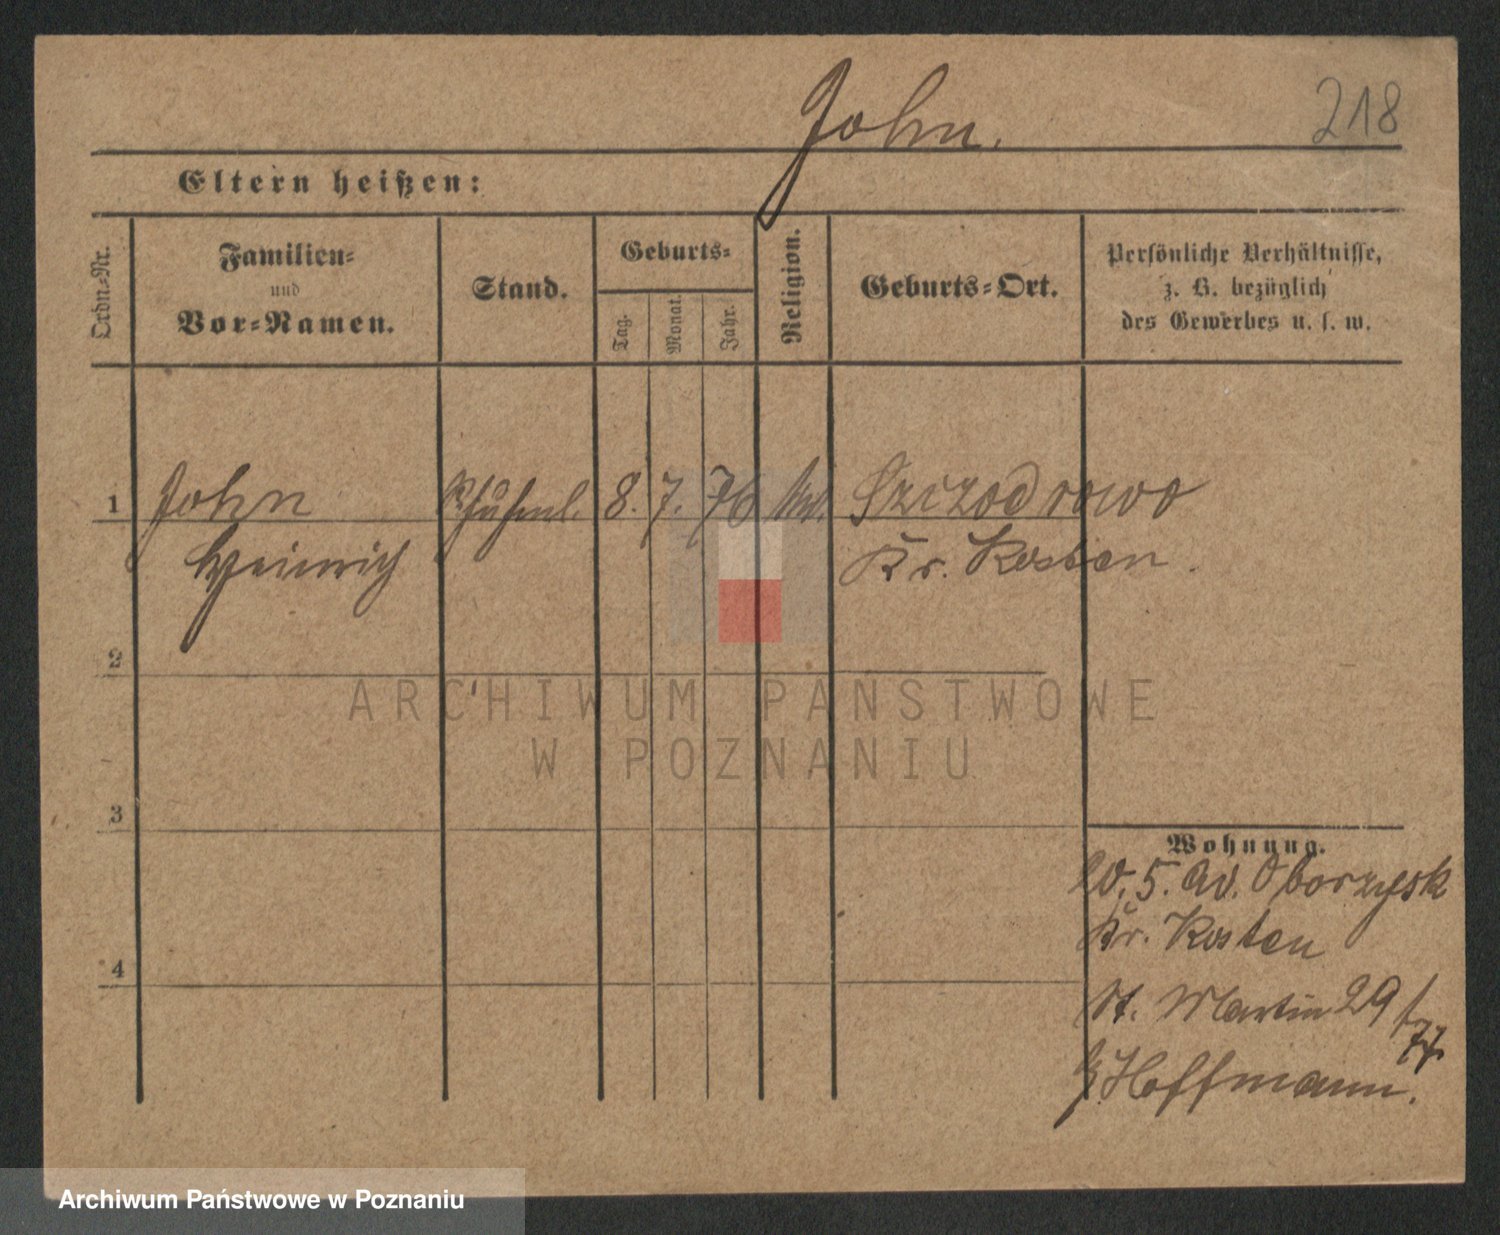 John.
218
Eltern heißen:
Ordn.-Nr.
Familien-
und
Vor-Namen.
Stand.
Geburts-
Tag.
Monat.
Jahr.
Religion.
Geburts-Ort.
Persönliche Verhältnisse,
z. B. bezüglich
des Gewerbes u. s. w.
1
John
8. 7. 76
Szczodrowo
Heinrich
Kr. Kosten.
2
3
4
ARCHIWUM PAŃSTWOWE
W POZNANIU
Wohnung.
5. Oborzysk
Kr. Kosten
St. Martin 29/
77.
Hoffmann.
Archiwum Państwowe w Poznaniu